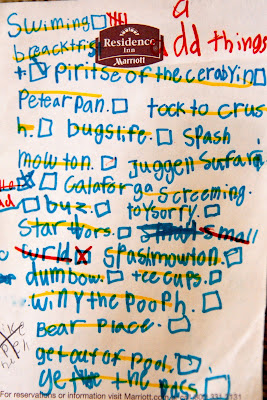 Swiming
a
breacktfis
Residence
Inn
Marriott
dd things
+ piritse of the cerabyin
Petear pan. tock to crus
h. bugslife. Spash
mowton. Juggell Sufari
Calafor ga screeming.
ad buz. toysorry.
Star wors. small
wrld spashmowton.
dumbow. tee cups.
winy the pooph.
Bear place.
get out of pool.
ge the pass
For reservations or information visit Marriott.com